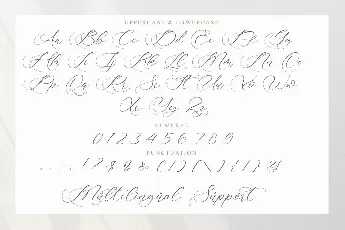 UPPERCASE & LOWERCASE
Aa Bb Cc Dd Ee Ff Gg
Hh Ii Jj Kk Ll Mm Nn Oo
Pp Qq Rr Ss Tt Uu Vv Ww
Xx Yy Zz
NUMERAL
0 1 2 3 4 5 6 7 8 9
PUNCTUATION
Multilingual Support